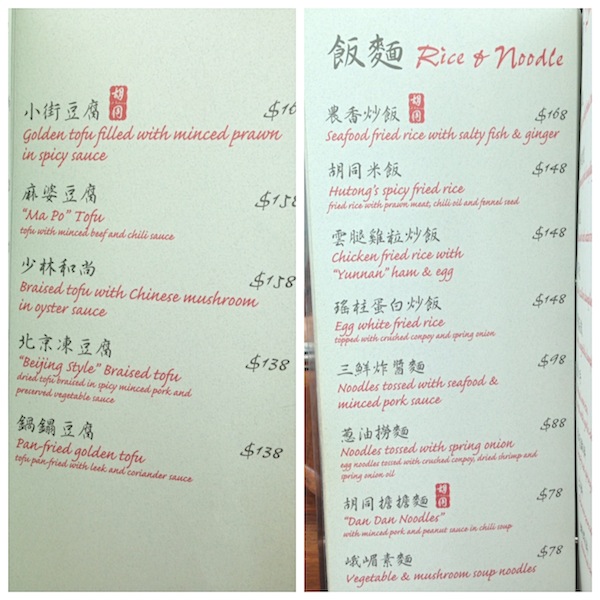 小街豆腐 胡同 $16
Golden tofu filled with minced prawn
in spicy sauce
麻婆豆腐 $158
"Ma Po" Tofu
tofu with minced beef and chili sauce
少林和尚 $158
Braised tofu with Chinese mushroom
in oyster sauce
北京凍豆腐 $138
"Beijing Style" Braised tofu
dried tofu braised in spicy minced pork and
preserved vegetable sauce
鍋鎉豆腐 $138
Pan-fried golden tofu
tofu pan-fried with leek and coriander sauce
飯麵 Rice & Noodle
農香炒飯 胡同 $168
Seafood fried rice with salty fish & ginger
胡同米飯 $148
Hutong's spicy fried rice
fried rice with prawn meat, chili oil and fennel seed
雲腿雞粒炒飯 $148
Chicken fried rice with
"Yunnan" ham & egg
瑤柱蛋白炒飯 $148
Egg white fried rice
topped with crushed conpoy and spring onion
三鮮炸醬麵 $98
Noodles tossed with seafood &
minced pork sauce
蔥油撈麵 $88
Noodles tossed with spring onion
egg noodles tossed with crushed conpoy, dried shrimp and
spring onion oil
胡同擔擔麵 胡同 $78
"Dan Dan Noodles"
with minced pork and peanut sauce in chili soup
峨嵋素麵 $78
Vegetable & mushroom soup noodles